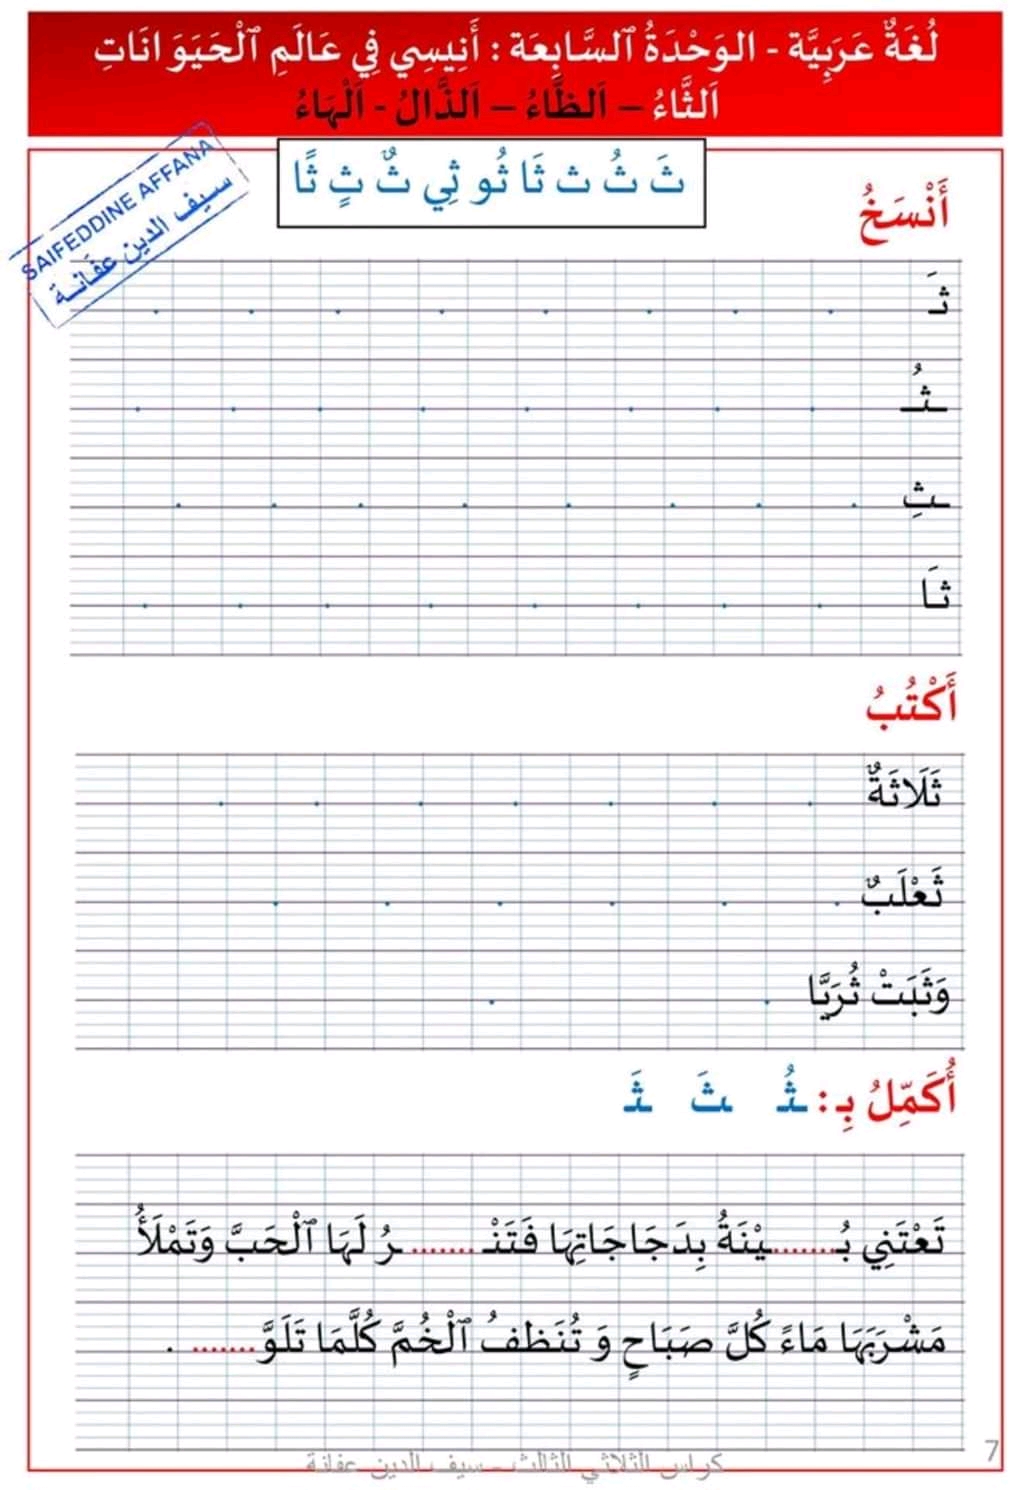 لُغَةٌ عَرَبِيَّة - الوَحْدَةُ ٱلسَّابِعَة : أَنِيسِي فِي عَالَمِ ٱلْحَيَوَانَاتِ
اَلثَّاءُ – اَلظَّاءُ – اَلذَّالُ - اَلْهَاءُ
SAIFEDDINE AFFANA
سيف الدين عفانة
ثَ ثُ ث ثَا ثُو ثِي ثٌ ثٍ ثًا
أَنْسَخُ
ثَـ
ـثُـ
ـثِ
ثَا
أَكْتُبُ
ثَلَاثَةٌ
ثَعْلَبٌ
وَثَبَتْ ثُرَيَّا
أُكَمِّلُ بِـ : ـثُـ ـثَ ـثَـ
تَعْتَنِي بُـ.......ـيْنَةُ بِدَجَاجَاتِهَا فَتَنْـ.......ـرُ لَهَا ٱلْحَبَّ وَتَمْلَأُ
مَشْرَبَهَا مَاءً كُلَّ صَبَاحٍ وَ تُنَظفُ ٱلْخُمَّ كُلَّمَا تَلَوَّ....... .
كراس الثلاثي الثالث – سيف الدين عفانة
7